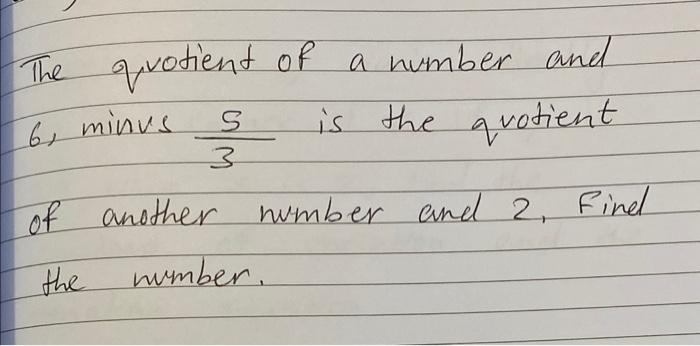 The quotient of a number and
6, minus 5/3 is the quotient
of another number and 2, Find
the number.